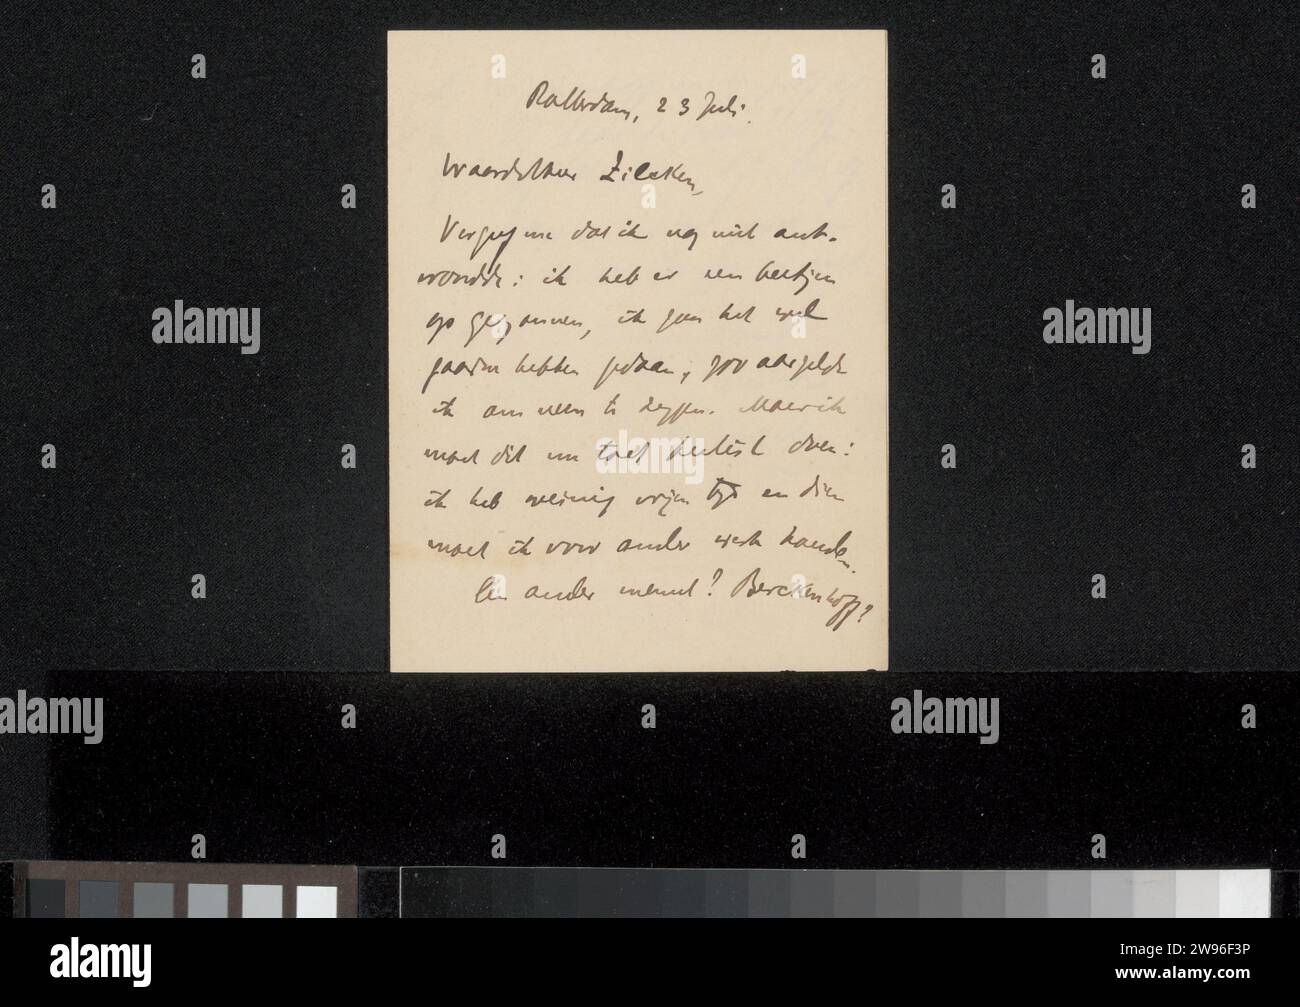 Rotterdam, 23 Juli.
Waarde Heer Zilcken,
Vergeef me dat ik nog niet ant-
woordde: ik heb er een beetjen
op gezonnen, ik zou het wel
gaarne hebben gedaan, zoo aarzelde
ik om neen te zeggen. Maar ik
moet dit nu toch heusch doen:
ik heb weinig vrijen tijd en dien
moet ik voor ander werk houden.
Een ander memel? Berckenhoff?
alamy
Image ID: 2W96F3P
www.alamy.com